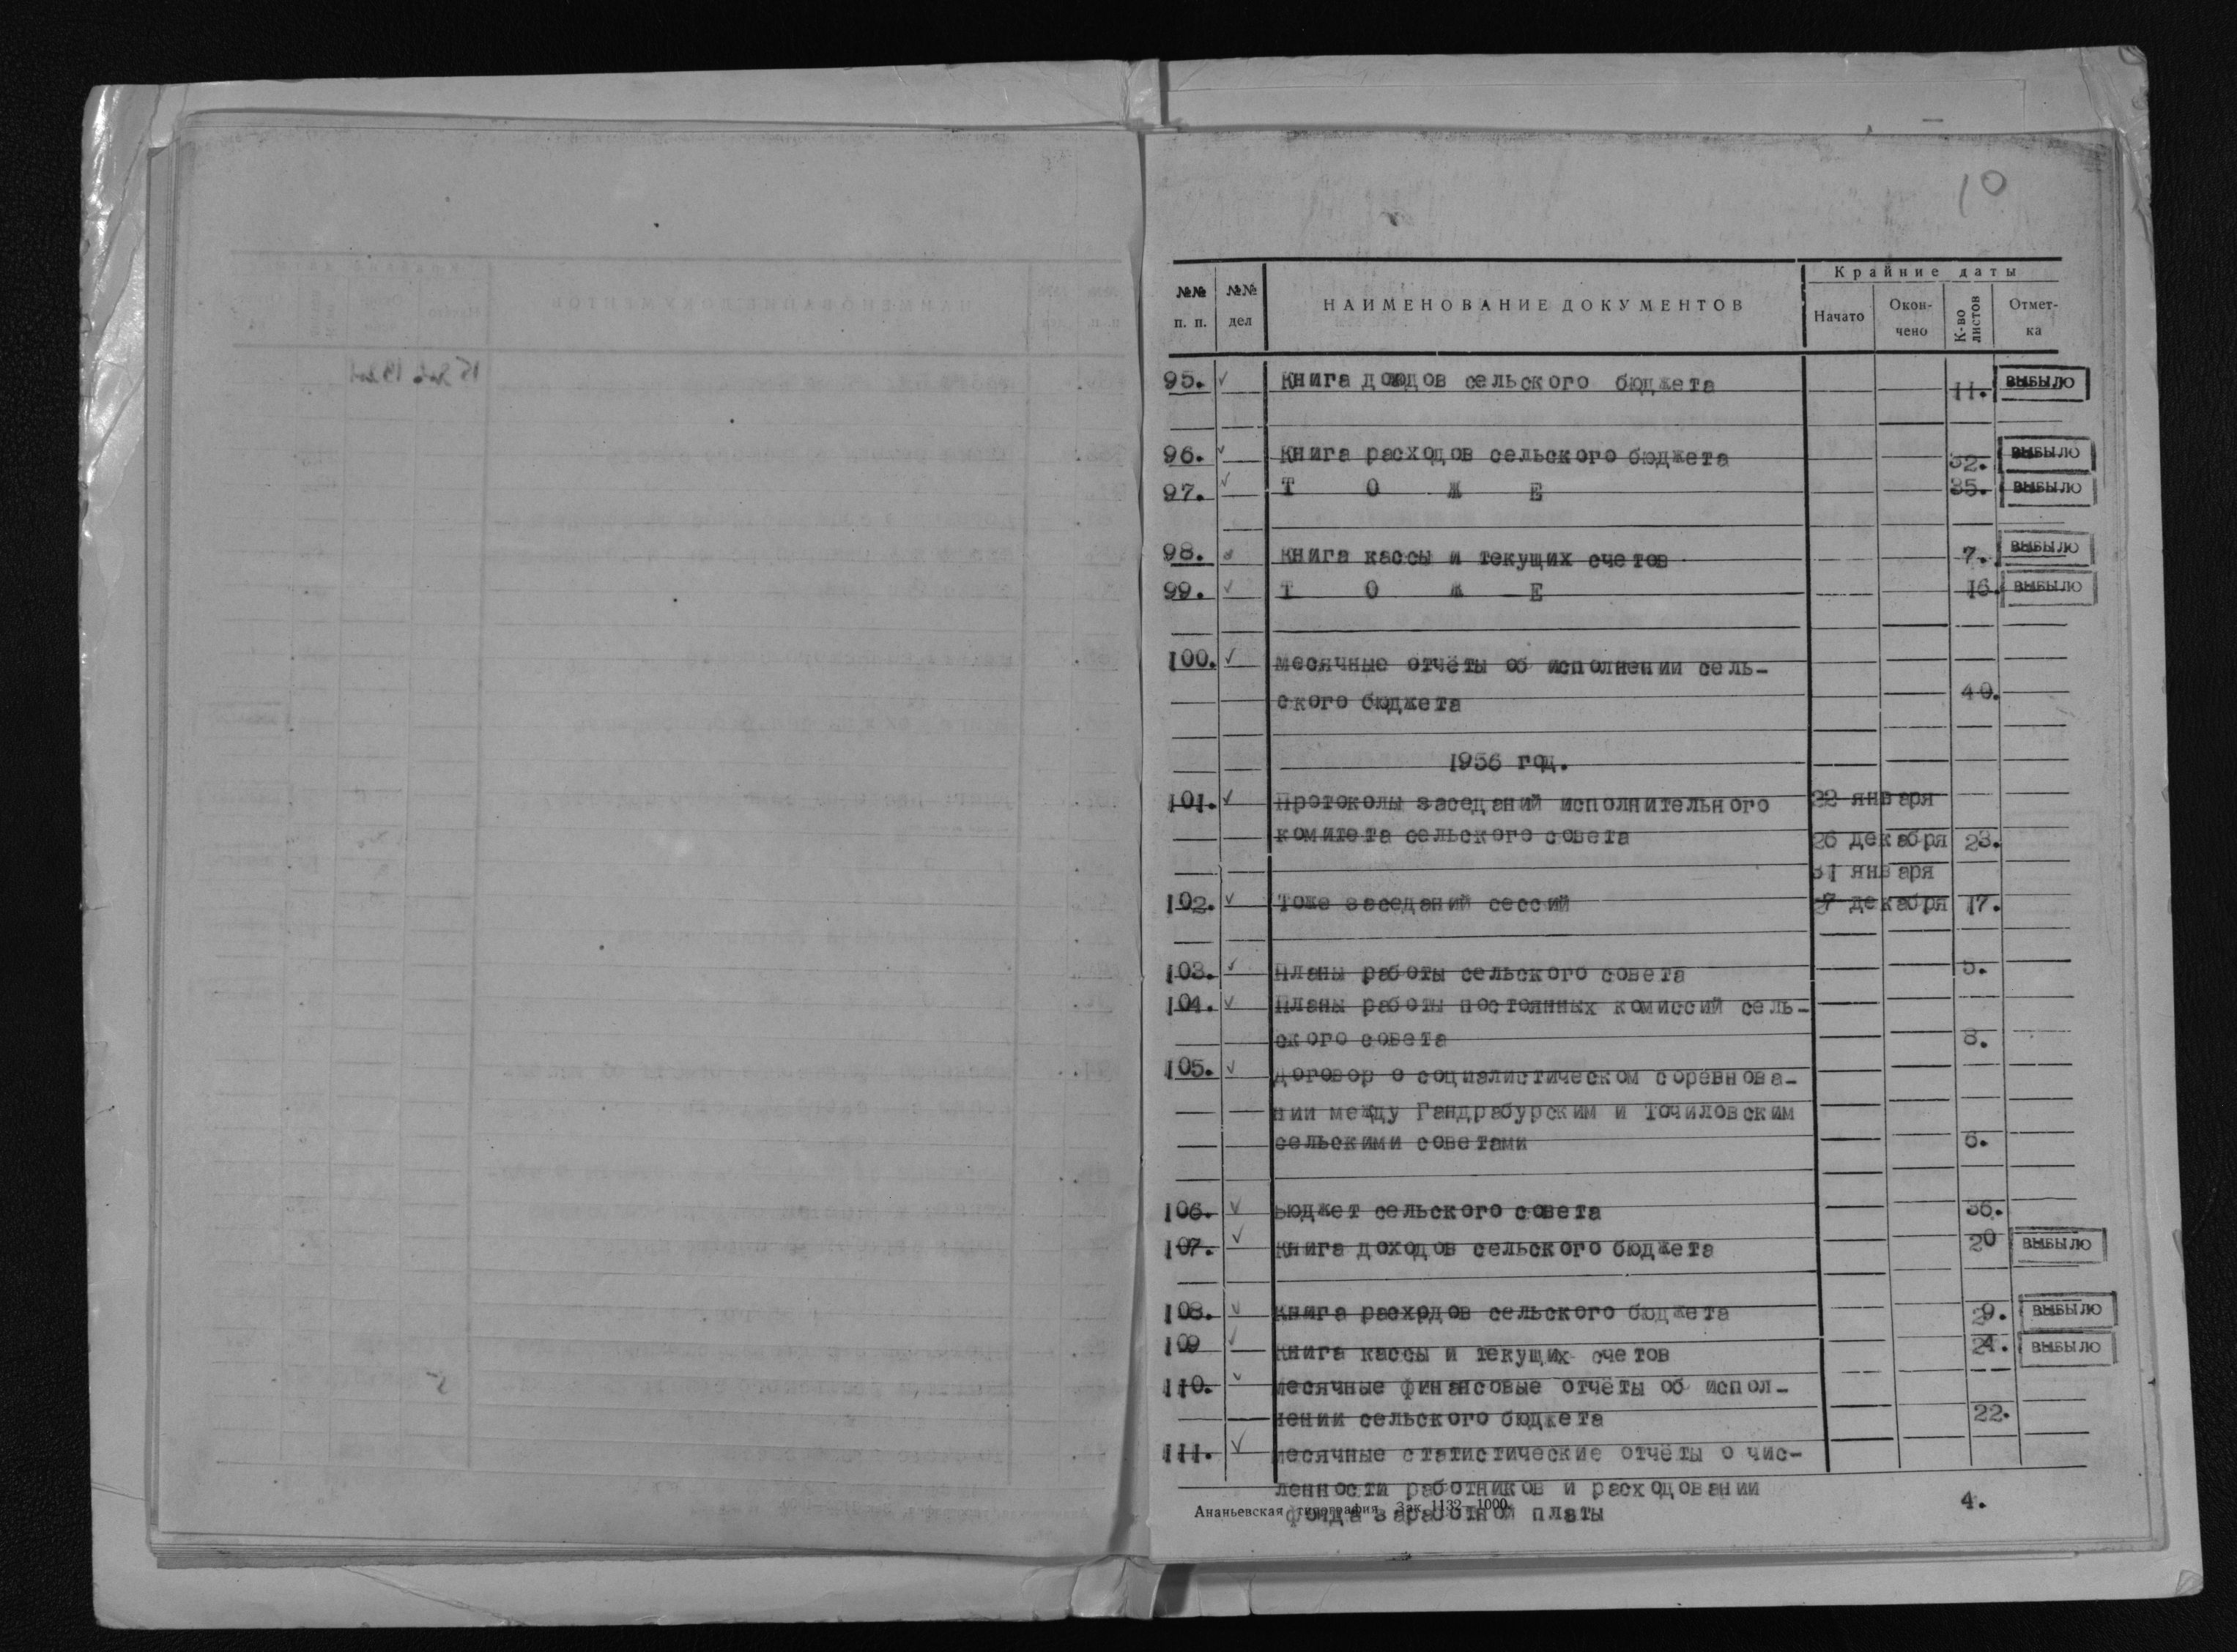 10
№№ п. п. №№ дел НАИМЕНОВАНИЕ ДОКУМЕНТОВ Крайние даты Начато Окончено К-во листов Отмет-ка
95. ✓ Книга доходов сельского бюджета 11. ВЫБЫЛО
96. ✓ Книга расходов сельского бюджета 32. ВЫБЫЛО
97. ✓ Т О Ж Е 35. ВЫБЫЛО
98. Книга кассы и текущих счетов 7. ВЫБЫЛО
99. ✓ Т О Ж Е 16. ВЫБЫЛО
100. ✓ месячные отчёты об исполнении сель-
ского бюджета 40.
1956 год.
101. ✓ Протоколы заседаний исполнительного 22 января
комитета сельского совета 26 декабря 23.
31 января
102. ✓ Тоже заседаний сессий 7 декабря 17.
103. ✓ Планы работы сельского совета 5.
104. ✓ Планы работы постоянных комиссий сель-
ского совета 8.
105. ✓ договор о социалистическом соревнова-
нии между Гандрабурским и Точиловским
сельскими советами 6.
106. ✓ Бюджет сельского совета 36.
107. ✓ Книга доходов сельского бюджета 20 ВЫБЫЛО
108. ✓ Книга расходов сельского бюджета 29. ВЫБЫЛО
109 ✓ Книга кассы и текущих счетов 24. ВЫБЫЛО
110. ✓ месячные финансовые отчёты об испол-
нении сельского бюджета 22.
111. ✓ месячные статистические отчёты о чис-
ленности работников и расходовании
фонда заработной платы 4.
Ананьевская типография Зак. 1132—1000